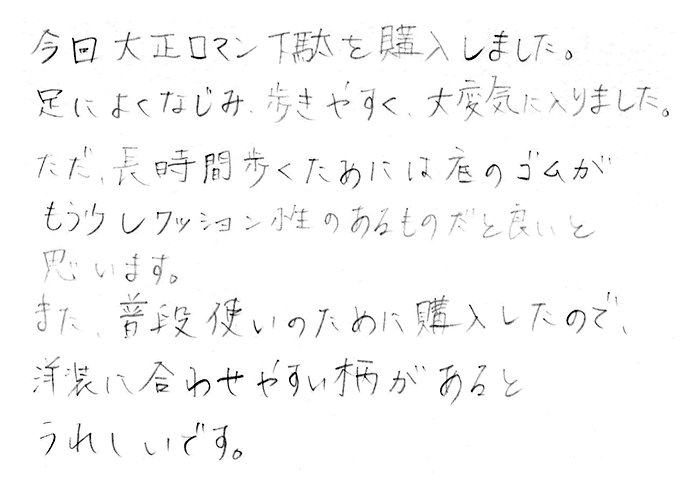 今回大正ロマン下駄を購入しました。
足によくなじみ、歩きやすく、大変気に入りました。
ただ、長時間歩くためには底のゴムが
もう少しクッション性のあるものだと良いと
思います。
また、普段使いのために購入したので、
洋装に合わせやすい柄があると
うれしいです。